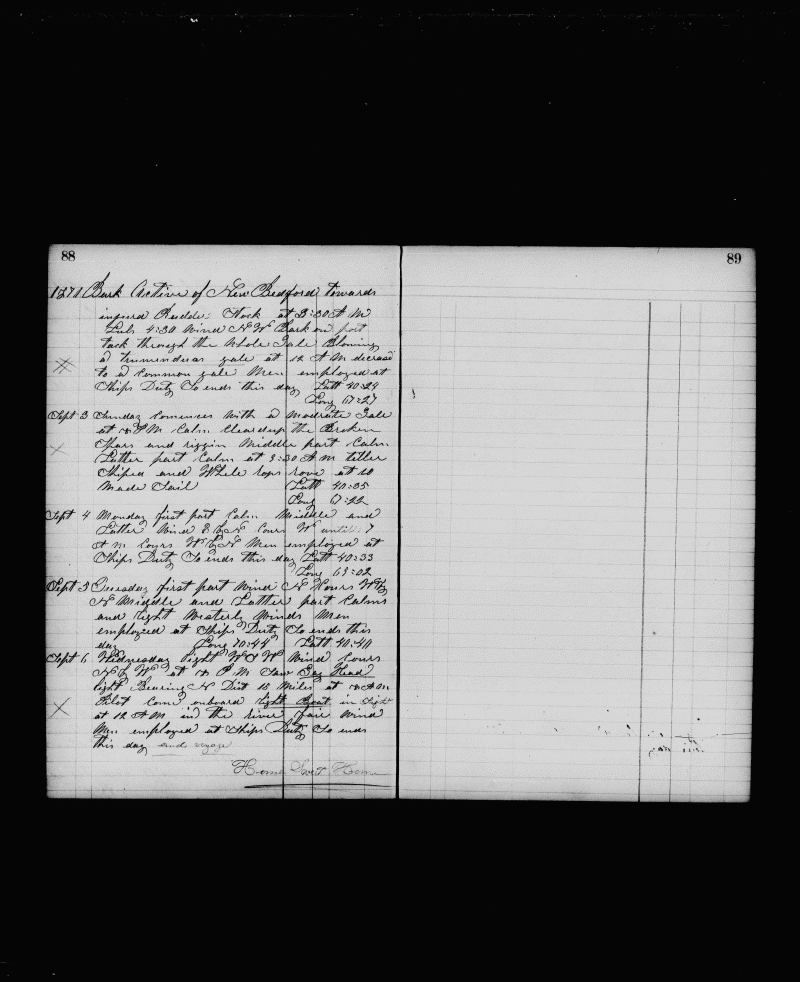 88
Bark Active of New Bedford towards
injured Rudder Stock at 3:30 A M
4:30 Wind N W Bark on port
tack through the Whole Gale Blowing
a trumendeas gale at 12 A M decreas
to a common gale Men employed at
Ships Duty So ends this day Latt 40:24
Long 67:27
Sept 3 Sunday Comences with a Modrate Gale
at P M Calm Cleard up the Broken
Spars and riggin Middle part Calm
Latter part Calm at 9:30 A M tiller
Shiped and Whele rops rove at 10
Made Sail Latt 40:35
Long 67:22
Sept 4 Monday first part Calm Middle and
Latter Wind Cours W until 7
A M Cours W by N Men employed at
Ships Duty So ends this day Latt 40:33
Long 69:02
Sept 5 Tuesday first part Wind N Cours W by
N Middle and Latter part Calms
and light Westerly Winds Men
employed at Ships Duty So ends this
day Long 70:44 Latt 40:40
Sept 6 Wednesday light Wind Cours
N by W at P M Saw Gay Head
light Bearing N Dist 15 Miles at A M
Pilot Com onboard light Boat in Sight
at 12 A M in the river fair Wind
Men employed at Ships Duty So ends
this day ends voyage
Home Swet Home
89